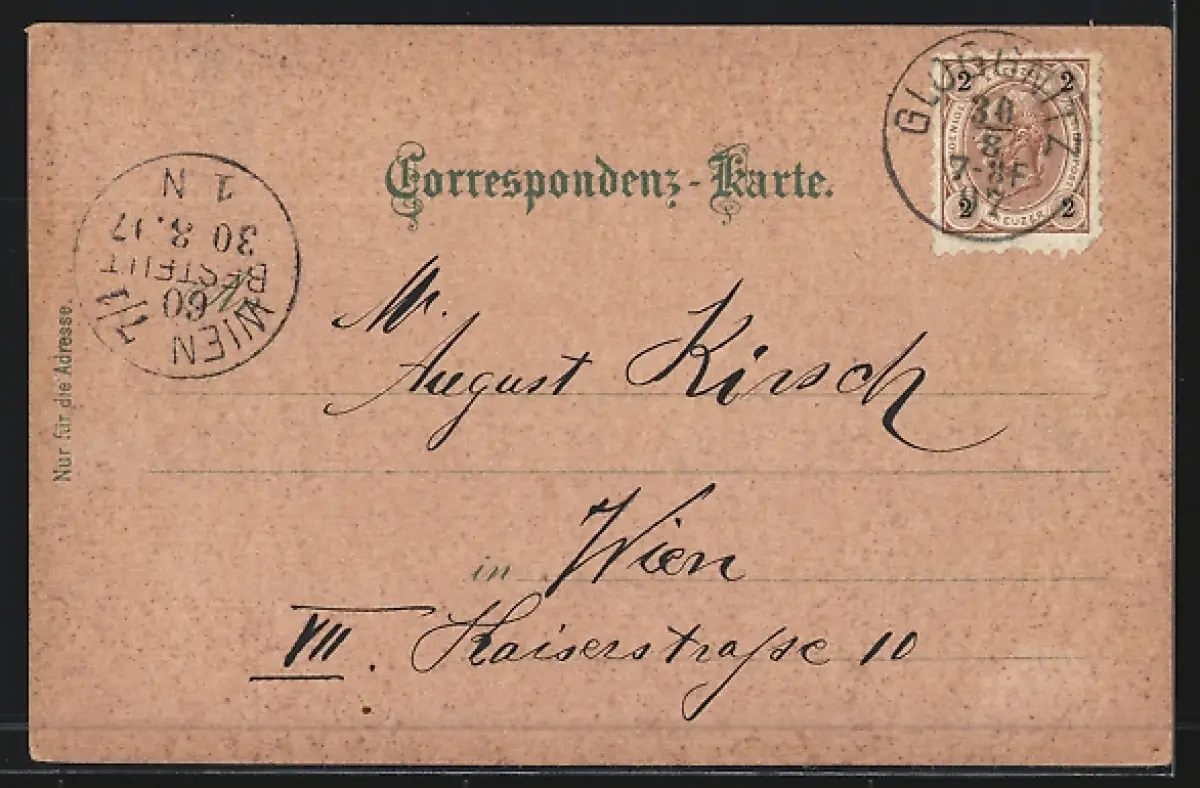 Correspondenz-Karte.
GLOGGNITZ
30
8
2
2
2
2
KREUZER
WIEN 7/1
60
BESTELLT
30 8. 97
1 N
Nur für die Adresse.
Mr.
August Kirsch
in Wien
VII. Kaiserstraße 10